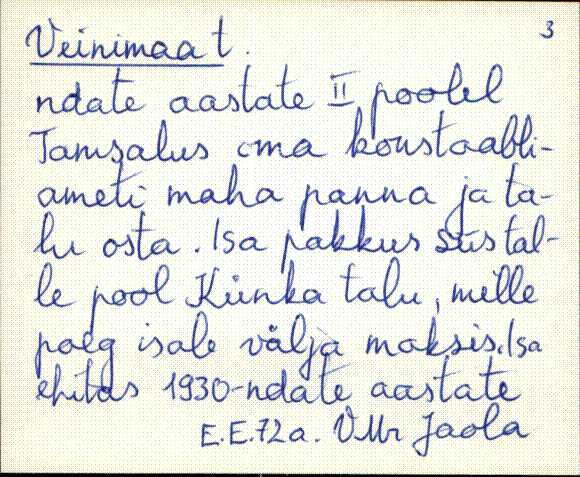 3
Veinimaa t.
ndate aastate II poolel
Tamsalus oma konstaabli-
ameti maha panna ja ta-
lu osta. Isa pakkus siis tal-
le pool Künka talu, mille
poeg isale välja maksis. Isa
ehitas 1930-ndate aastate
E.E.72a. VMr Jaola